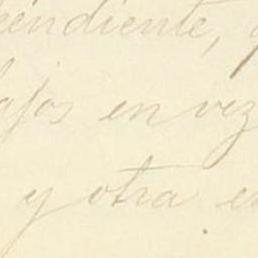 pendiente,
ajos en vez
y otra e